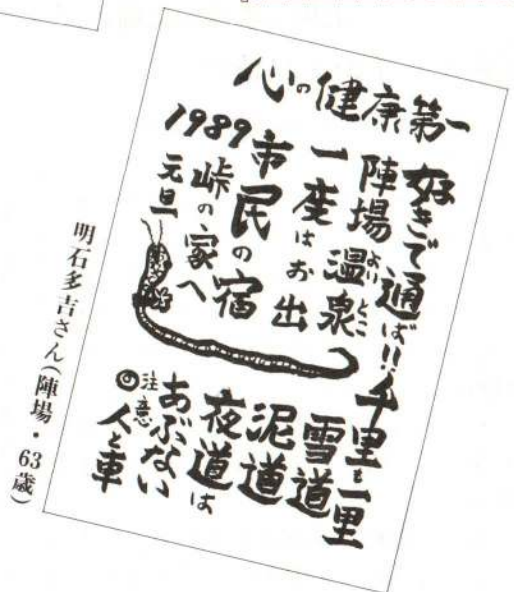 心の健康第一
好きで通ば!!千里も一里
陣場温泉
よいとこ
一度はお出
市民の宿
峠の家へ
1989
元旦
雪道
泥道
夜道は
あぶない
人と車
◎注意
明石多吉さん(陣場・63歳)